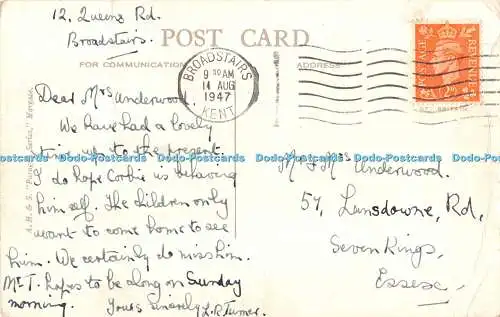 12, Queens Rd.
Broadstairs.
POST CARD
FOR COMMUNICATION
ADDRESS
BROADSTAIRS
9 30 AM
14 AUG
1947
KENT
POSTAGE
REVENUE
Dear Mrs Underwood,
We have had a lovely
time up to the present.
I do hope Corbie is behaving
himself. The children only
want to come home to see
him. We certainly do miss him.
Mr T. hopes to be along on Sunday
morning. Yours sincerely L.R. Turner.
Mr & Mrs Underwood.
57, Lansdowne, Rd,
Seven Kings,
Essex.
Dodo-Postcards Dodo-Postcards Dodo-Postcards Dodo-Postcards Dodo-Postcards Dodo-Postcards